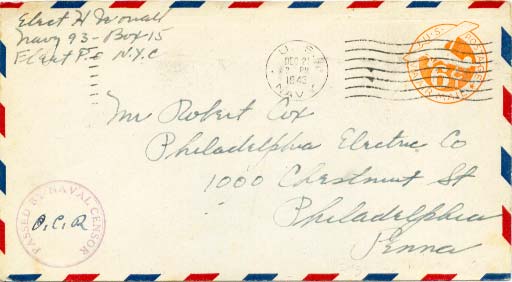 Elect H
Navy 93-Box 15
Fleet P.O N.Y.C
U.S.
DEC 2
PM
1943
NAVY
U.S. POSTAGE
AIR MAIL
6¢
Mr Robert Cox
Philadelphia Electric Co
1000 Chestnut St
Philadelphia
Penna
PASSED BY NAVAL CENSOR